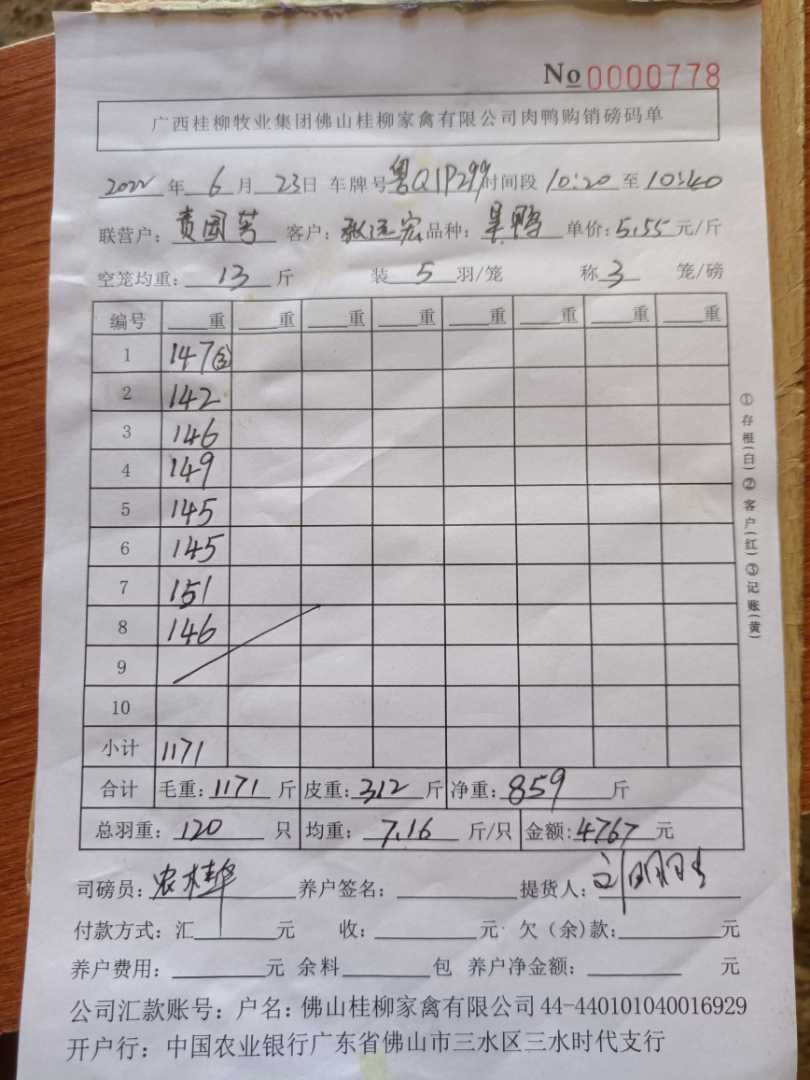 No 0000778
广西桂柳牧业集团佛山桂柳家禽有限公司肉鸭购销磅码单
2022 年 6 月 23日 车牌号 粤Q1P299 时间段 10:20 至 10:40
联营户: 国芳 客户: 宏 品种: 鸭 单价: 5.55 元/斤
空笼均重: 13 斤 装 5 羽/笼 称 3 笼/磅
编号 重 重 重 重 重 重 重 重
1 147
2 142
3 146
4 149
5 145
6 145
7 151
8 146
9
10
小计 1171
合计 毛重: 1171 斤 皮重: 312 斤 净重: 859 斤
总羽重: 120 只 均重: 7.16 斤/只 金额: 4767 元
司磅员: 农桂华 养户签名: 提货人: 刘明
付款方式: 汇 元 收: 元 欠(余)款: 元
养户费用: 元 余料 包 养户净金额: 元
公司汇款账号: 户名: 佛山桂柳家禽有限公司 44-440101040016929
开户行: 中国农业银行广东省佛山市三水区三水时代支行
①存根(白)②客户(红)③记账(黄)